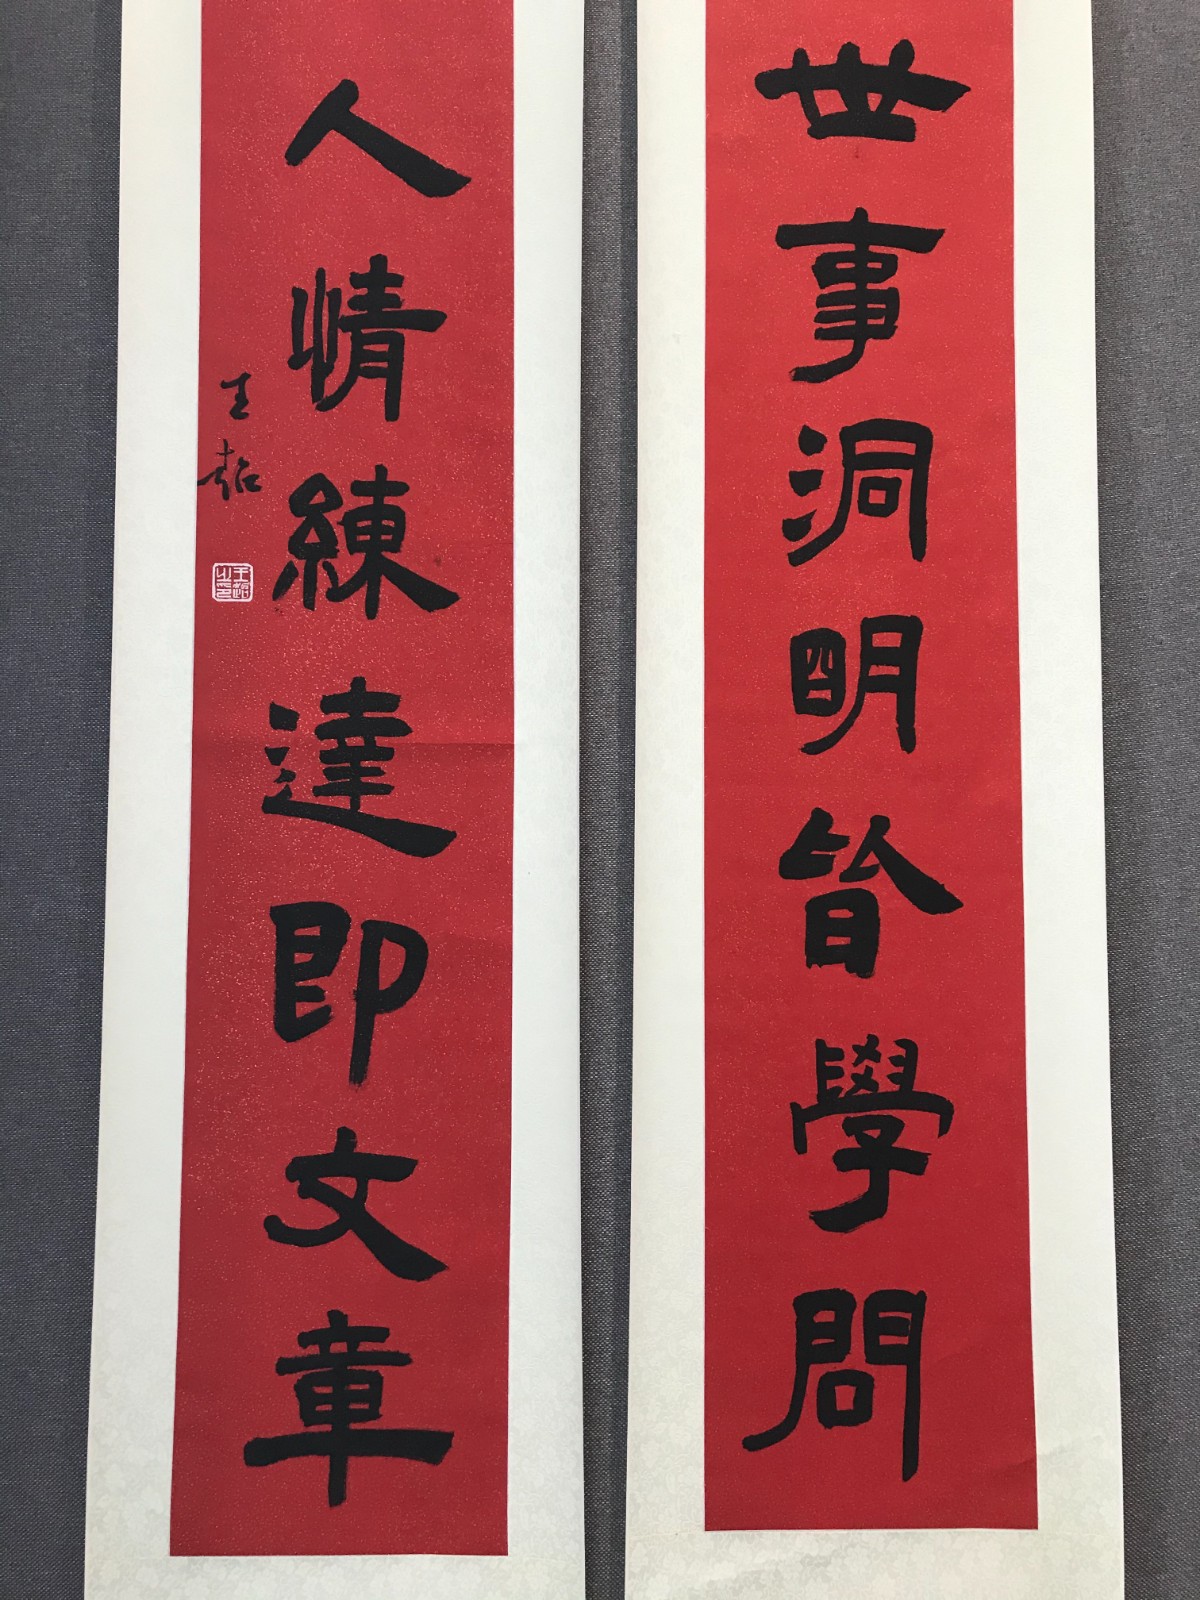 世事洞明皆學問
人情練達即文章
王超